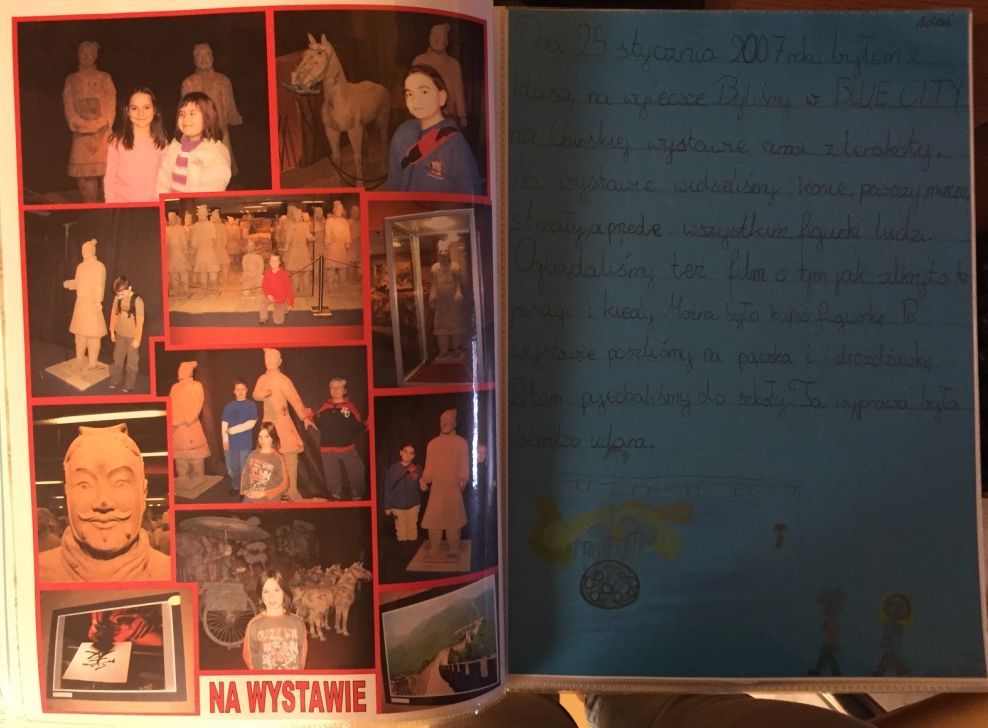 NA WYSTAWIE
Adaś
Dna 25 stycznia 2007 roku byłem z
klasą na wycieczce Byliśmy w BLUE CITY
na Chińskiej wystawie armi z terakoty.
Na wystawie widzieliśmy: konie, powozy, miecze
strzały, a przede wszystkim figurki ludzi.
Oglądaliśmy też film o tym jak odkryto te
posągi i kiedy Można było kupić figurkę. Po
wystawie poszliśmy na pączka i drożdżówkę
Potem pojechaliśmy do szkoły. Ta wyprawa była
bardzo udana.